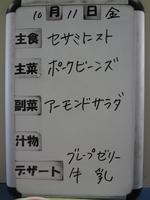 10月11日金
主食 セサミトースト
主菜 ポークビーンズ
副菜 アーモンドサラダ
汁物
デザート グレープゼリー
牛乳